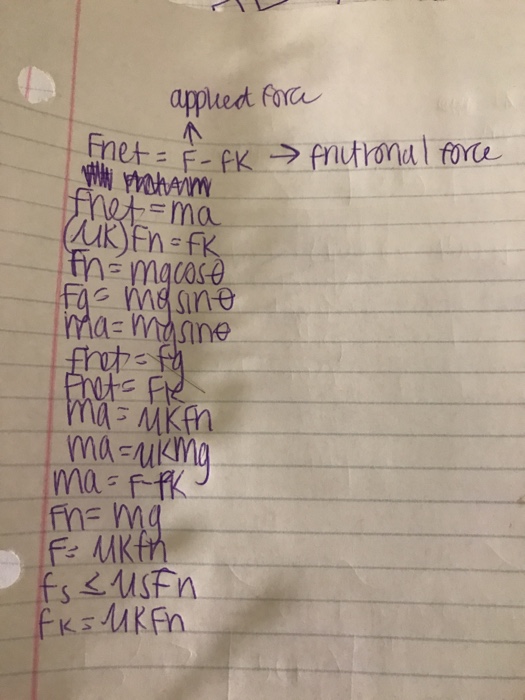 applied force
↑
Fnet = F - fK → frictional force
Fnet = ma
(μK)Fn = fK
Fn = mgcosθ
Fg = mgsinθ
ma = mgsinθ
fnet = fg
Fnet = FK
ma = μKfn
ma = μKmg
ma = F-fK
Fn = mg
F = μKfn
fs ≤ μsFn
fK = μKFn